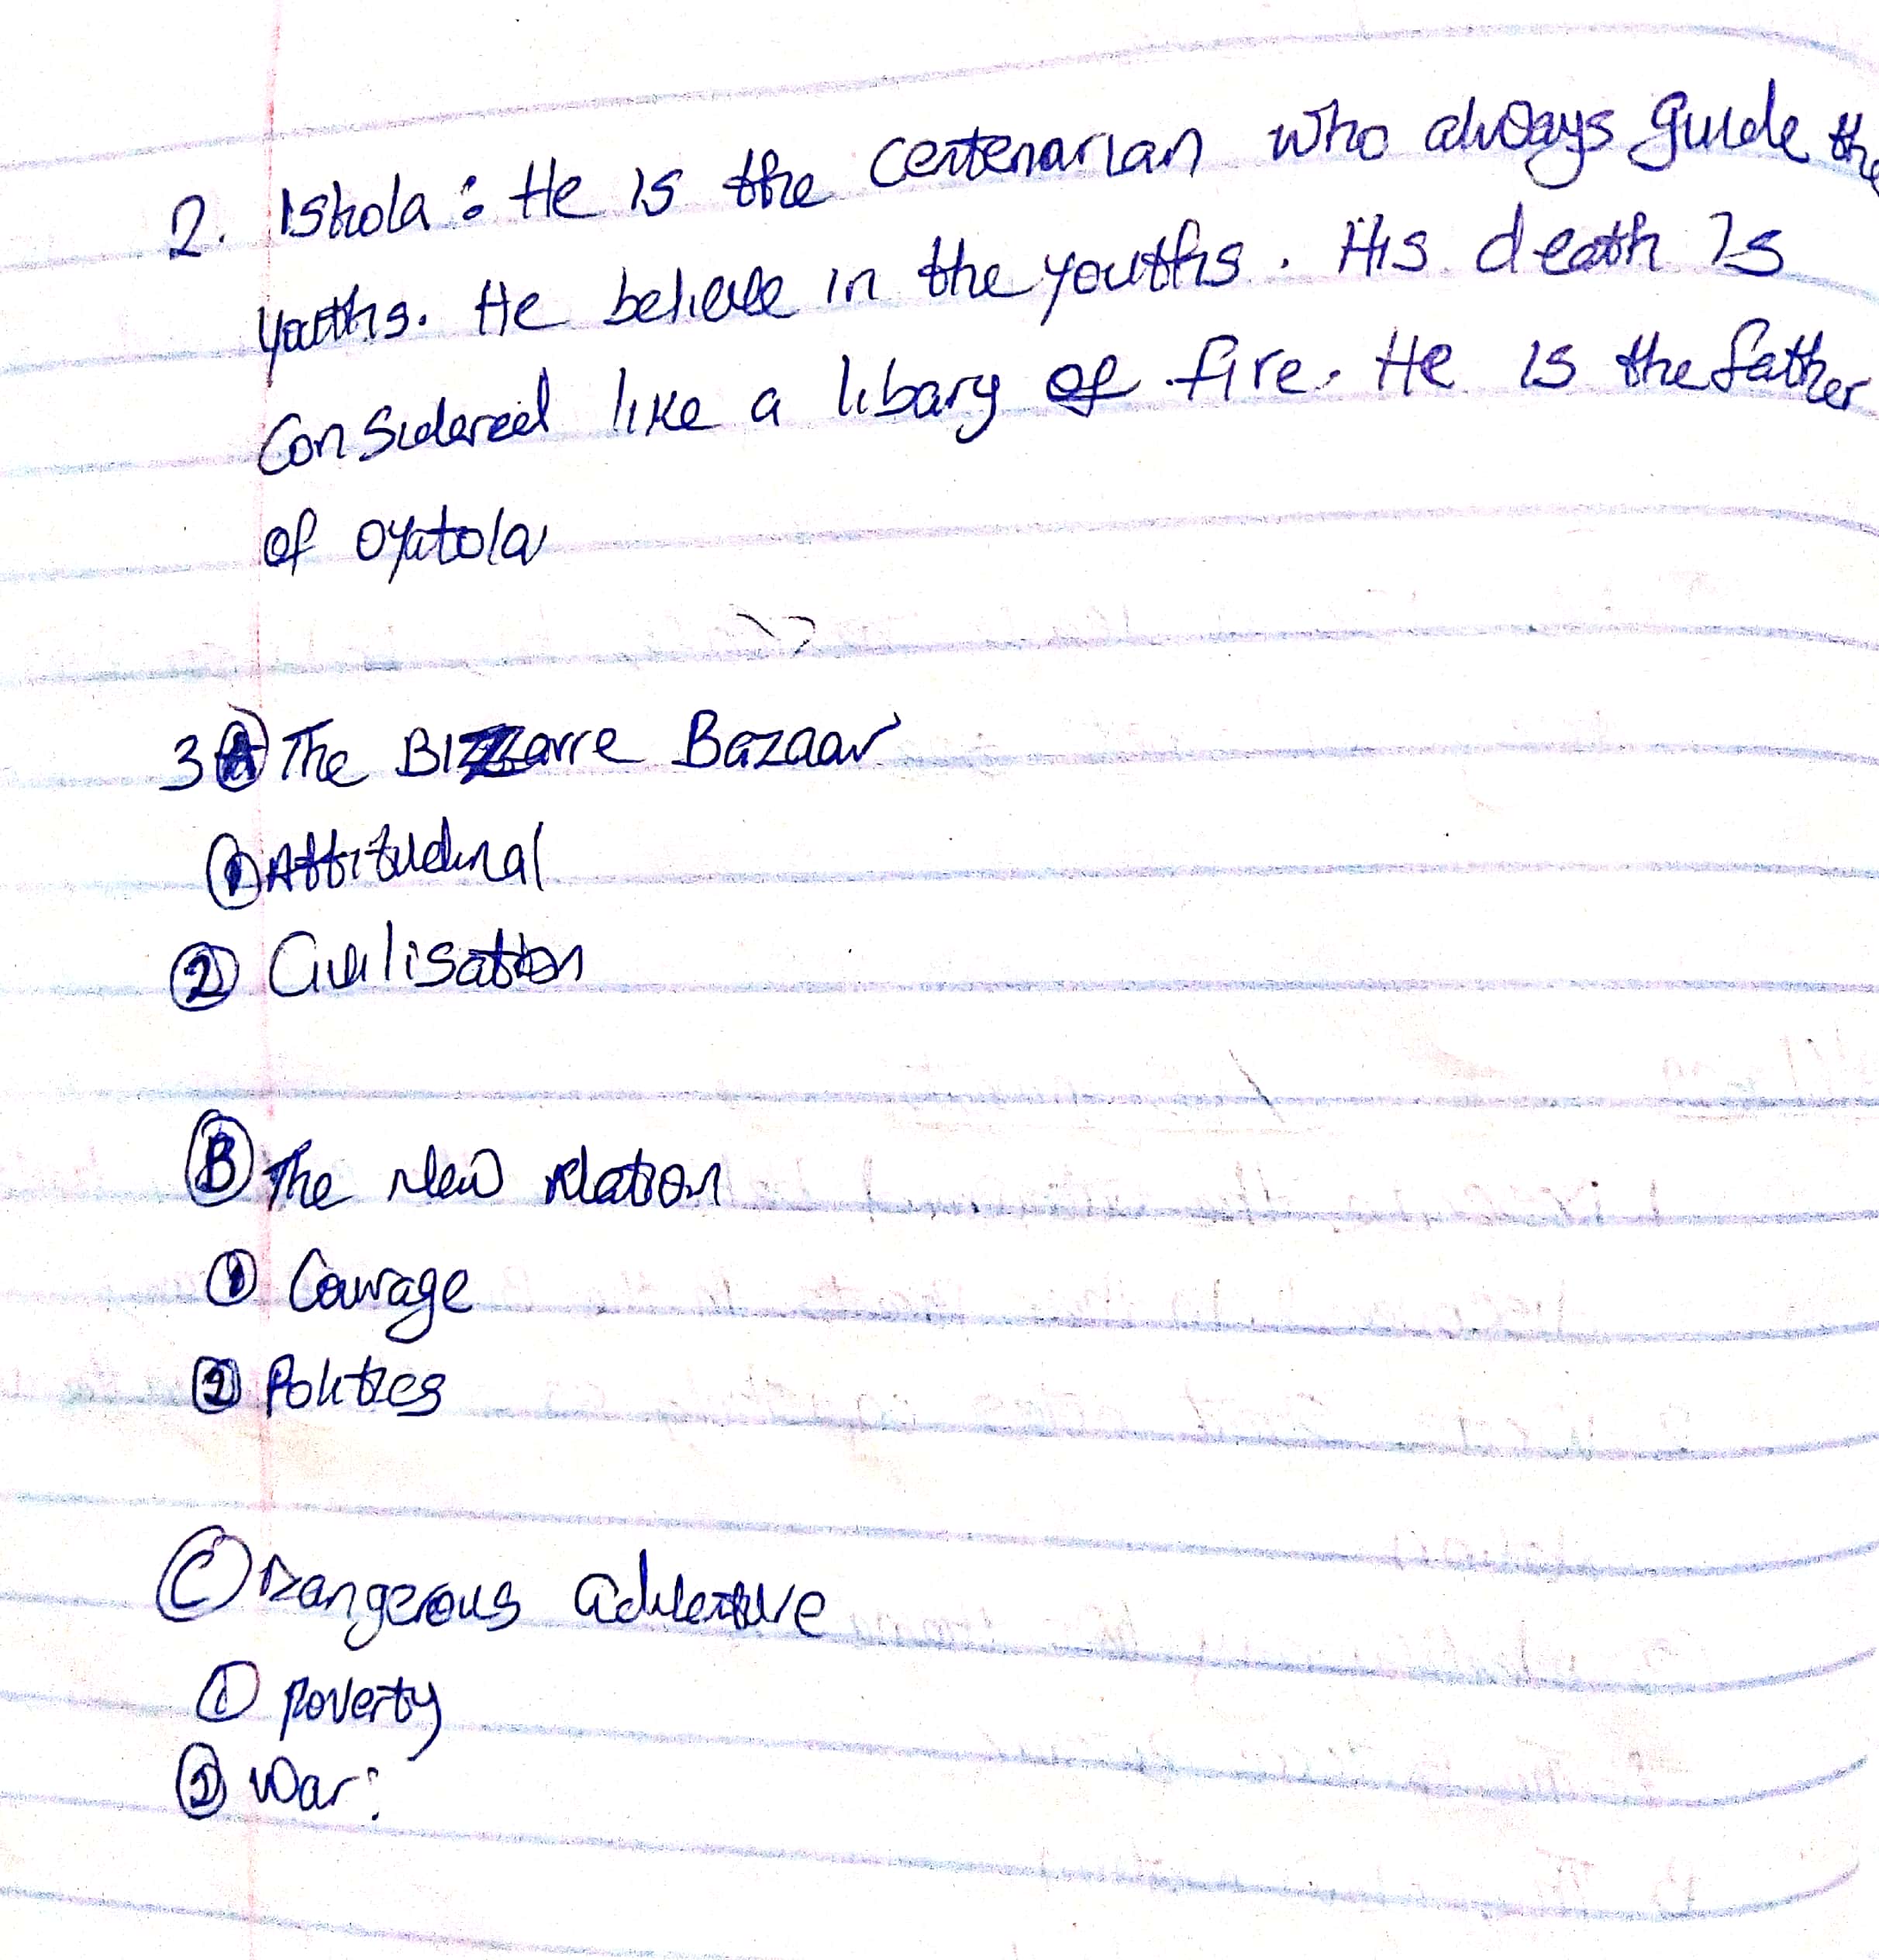 2. Ishola : He is the centenarian who always guide the
youths. He believe in the youths. His death is
Considered like a libary of fire. He is the father
of oyatola
3 A The Bizzarre Bazaar
1 Attitudinal
2 Civilisation
B The New relation
1 Courage
2 Politics
C Dangerous adventure
1 poverty
2 War: